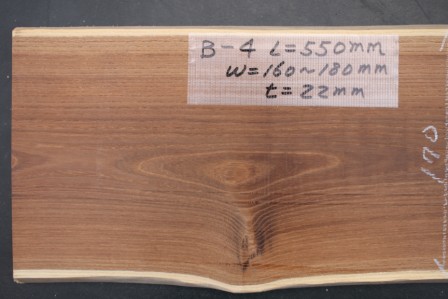 B-4 L=550mm
W=160~180mm
t=22mm
170